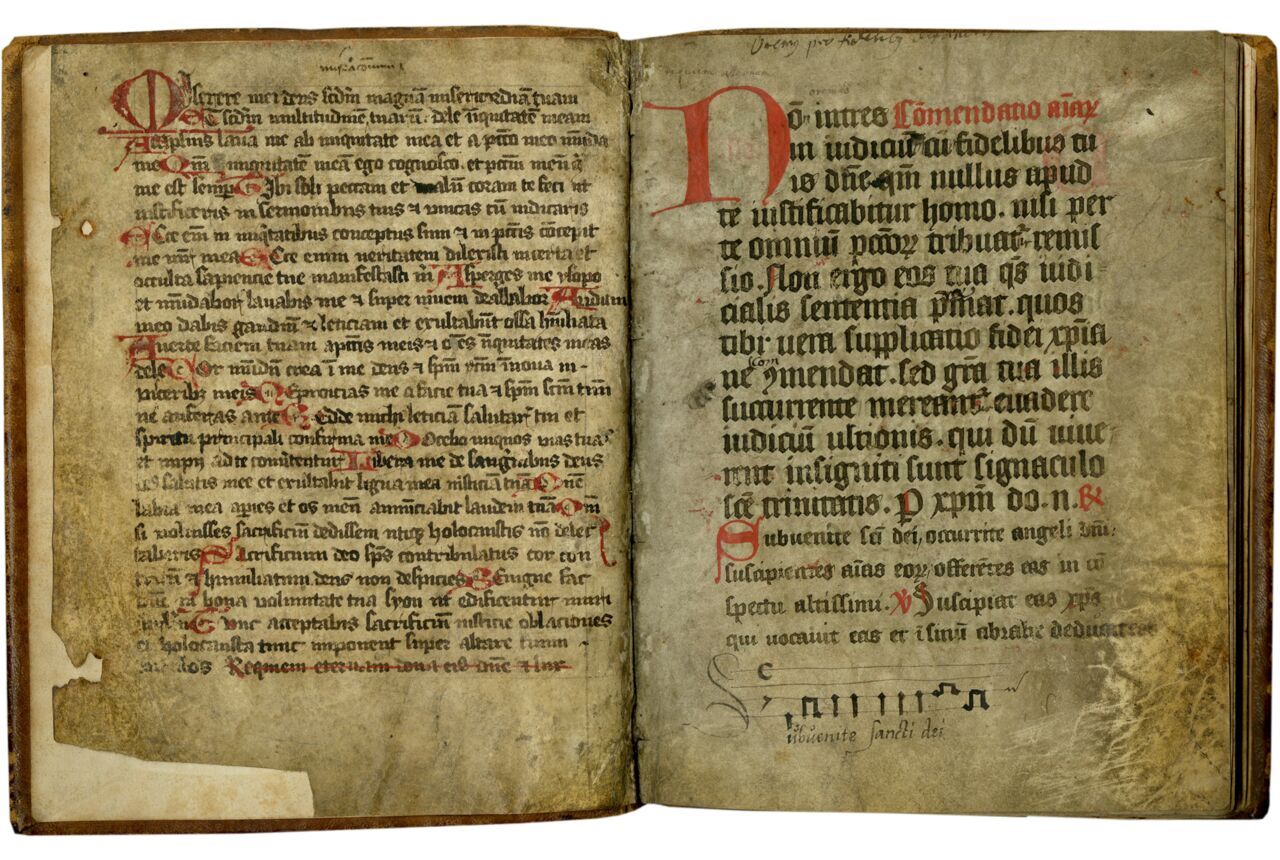 Miserere mei deus scdm magnā misericordiā tuam
Et scdm multitudinē tuarū dele iniquitatē meam
Amplius laua me ab iniquitate mea et a pctō meo mūda
me Qm̄ iniquitatē meā ego cognosco et pctm meū
me est semp Tibi soli peccaui et malū coram te feci ut
iustificeris in sermonibus tuis ⁊ uincas cū iudicaris
Ecce em̄ in iniqtatibus conceptus sum ⁊ in pctīs cōcepit
me mea Ecce enim ueritatem dilexisti incerta et
occulta sapiencie tue manifestasti m̄ Asperges me ysopo
et mūdabor lauabis me ⁊ super niuem dealbabor Auditui
meo dabis gaudiū ⁊ leticiam et exultabūt ossa hūiliata
Auerte faciem tuam a pctīs meis ⁊ oēs iniquitates meas
dele Cor mūdū crea ī me deus ⁊ spm̄ rctm̄ īnoua in
uisceribꝫ meis Ne proicias me a facie tua ⁊ spm̄ scm̄ tuū
ne auferas a me Redde michi leticiā salutaris tui et
spiritu principali confirma me Docebo iniquos uias tuas
et impii ad te conuertentur Libera me de sanguībus deus
deus salutis mee et exultabit ligua mea iusticiā tuā Dn̄e
labia mea apies et os meū annūciabit laudem tuā Qm̄
si uoluisses sacrificiū dedissem utiqꝫ holocaustis nō delec
taberis Sacrificium deo sps̄ contribulatus cor con
tritū ⁊ humiliatum deus non despicies Benigne fac
dn̄e in bona uoluntate tua syon ut edificentur muri
Tunc acceptabis sacrificiū iusticie oblaciones
et holocausta tunc imponent super altare tuum
uitulos Requiem eternam dona eis dn̄e ⁊ lux
oremus
Nō intres Cōmendatio aīaꝝ
in iudiciū cū fidelibus tu
is dn̄e qm̄ nullus apud
te iustificabitur homo. nisi per
te omniū pctōꝝ tribuat̄ remis
sio. Non ergo eos tua qs̄ iudi
cialis sententia p̄mat. quos
tibi uera supplicatio fidei xp̄ia
ne 9mendat. sed grā tua illis
succurrente mereant̄ euadere
iudiciū ultionis. qui dū uiue
rent insigniti sunt signaculo
scē trinitatis. P xp̄m do. n. R
Subuenite scī dei, occurrite angeli dn̄i:
suscipientes aīas eoꝝ offerētes eas in cō
spectu altissimi. V Suscipiat eas xp̄s
qui uocauit eas et ī sinū abrahe deducant eas
Subuenite sancti dei